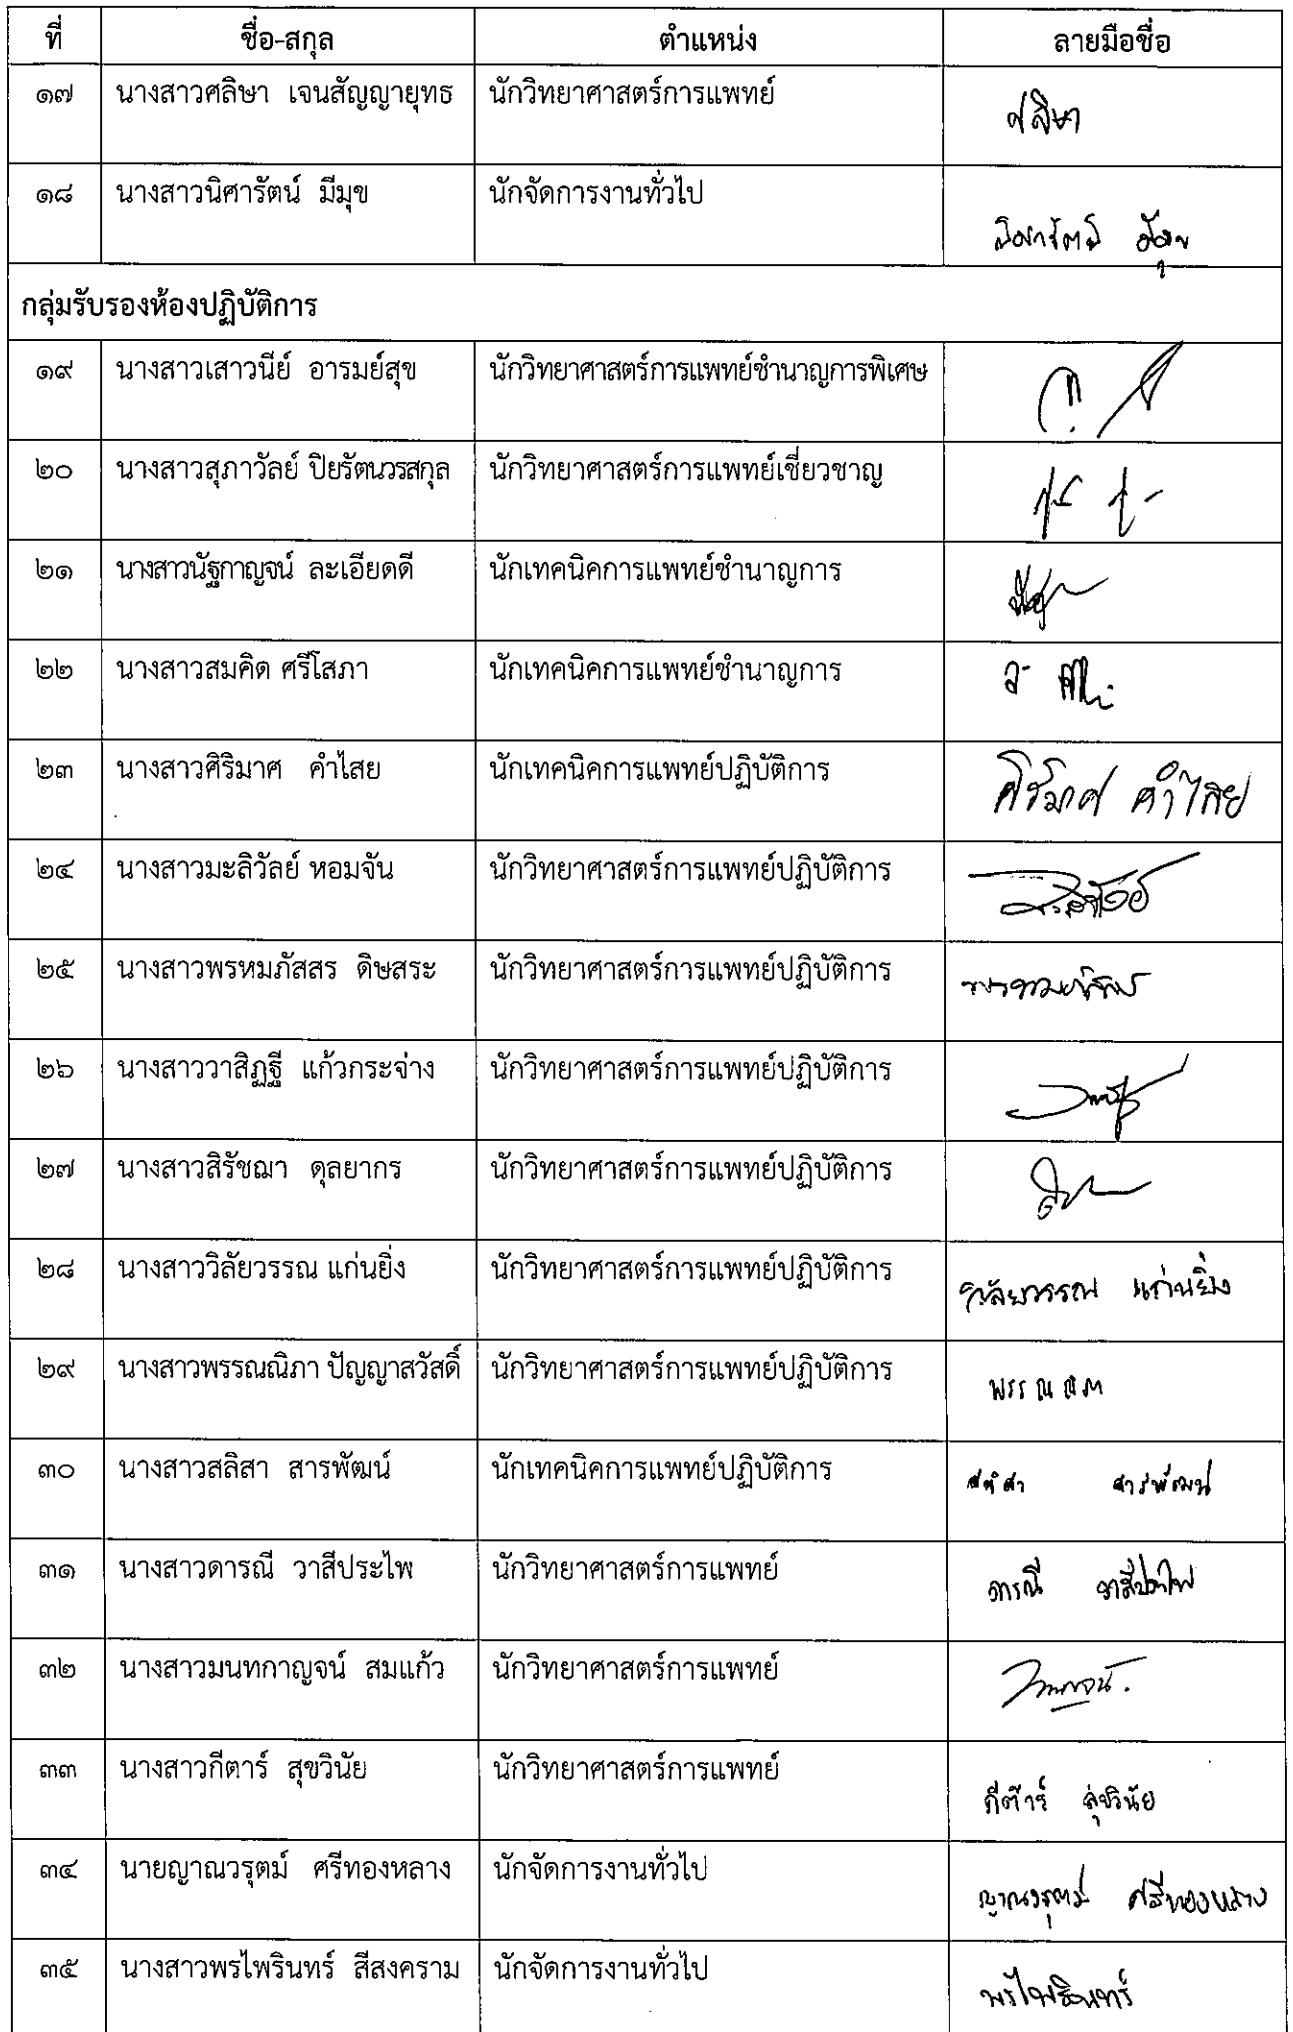 ที่ ชื่อ-สกุล ตำแหน่ง ลายมือชื่อ
๑๗ นางสาวศลิษา เจนสัญญายุทธ นักวิทยาศาสตร์การแพทย์ ศลิษา
๑๘ นางสาวนิศารัตน์ มีมุข นักจัดการงานทั่วไป นิศารัตน์ มีมุข
กลุ่มรับรองห้องปฏิบัติการ
๑๙ นางสาวเสาวนีย์ อารมย์สุข นักวิทยาศาสตร์การแพทย์ชำนาญการพิเศษ
๒๐ นางสาวสุภาวัลย์ ปิยรัตนวรสกุล นักวิทยาศาสตร์การแพทย์เชี่ยวชาญ
๒๑ นางสาวนัฐกาญจน์ ละเอียดดี นักเทคนิคการแพทย์ชำนาญการ
๒๒ นางสาวสมคิด ศรีโสภา นักเทคนิคการแพทย์ชำนาญการ
๒๓ นางสาวศิริมาศ คำไสย นักเทคนิคการแพทย์ปฏิบัติการ ศิริมาศ คำไสย
๒๔ นางสาวมะลิวัลย์ หอมจัน นักวิทยาศาสตร์การแพทย์ปฏิบัติการ
๒๕ นางสาวพรหมภัสสร ดิษสระ นักวิทยาศาสตร์การแพทย์ปฏิบัติการ
๒๖ นางสาววาสิฏฐี แก้วกระจ่าง นักวิทยาศาสตร์การแพทย์ปฏิบัติการ
๒๗ นางสาวสิรัชฌา ดุลยากร นักวิทยาศาสตร์การแพทย์ปฏิบัติการ
๒๘ นางสาววิลัยวรรณ แก่นยิ่ง นักวิทยาศาสตร์การแพทย์ปฏิบัติการ วิลัยวรรณ แก่นยิ่ง
๒๙ นางสาวพรรณณิภา ปัญญาสวัสดิ์ นักวิทยาศาสตร์การแพทย์ปฏิบัติการ พรรณณิภา
๓๐ นางสาวสลิสา สารพัฒน์ นักเทคนิคการแพทย์ปฏิบัติการ สลิสา สารพัฒน์
๓๑ นางสาวดารณี วาสีประไพ นักวิทยาศาสตร์การแพทย์ ดารณี วาสีประไพ
๓๒ นางสาวมนทกาญจน์ สมแก้ว นักวิทยาศาสตร์การแพทย์
๓๓ นางสาวกีตาร์ สุขวินัย นักวิทยาศาสตร์การแพทย์ กีต้าร์ สุขวินัย
๓๔ นายญาณวรุตม์ ศรีทองหลาง นักจัดการงานทั่วไป ญาณวรุตม์ ศรีทองหลาง
๓๕ นางสาวพรไพรินทร์ สีสงคราม นักจัดการงานทั่วไป พรไพรินทร์